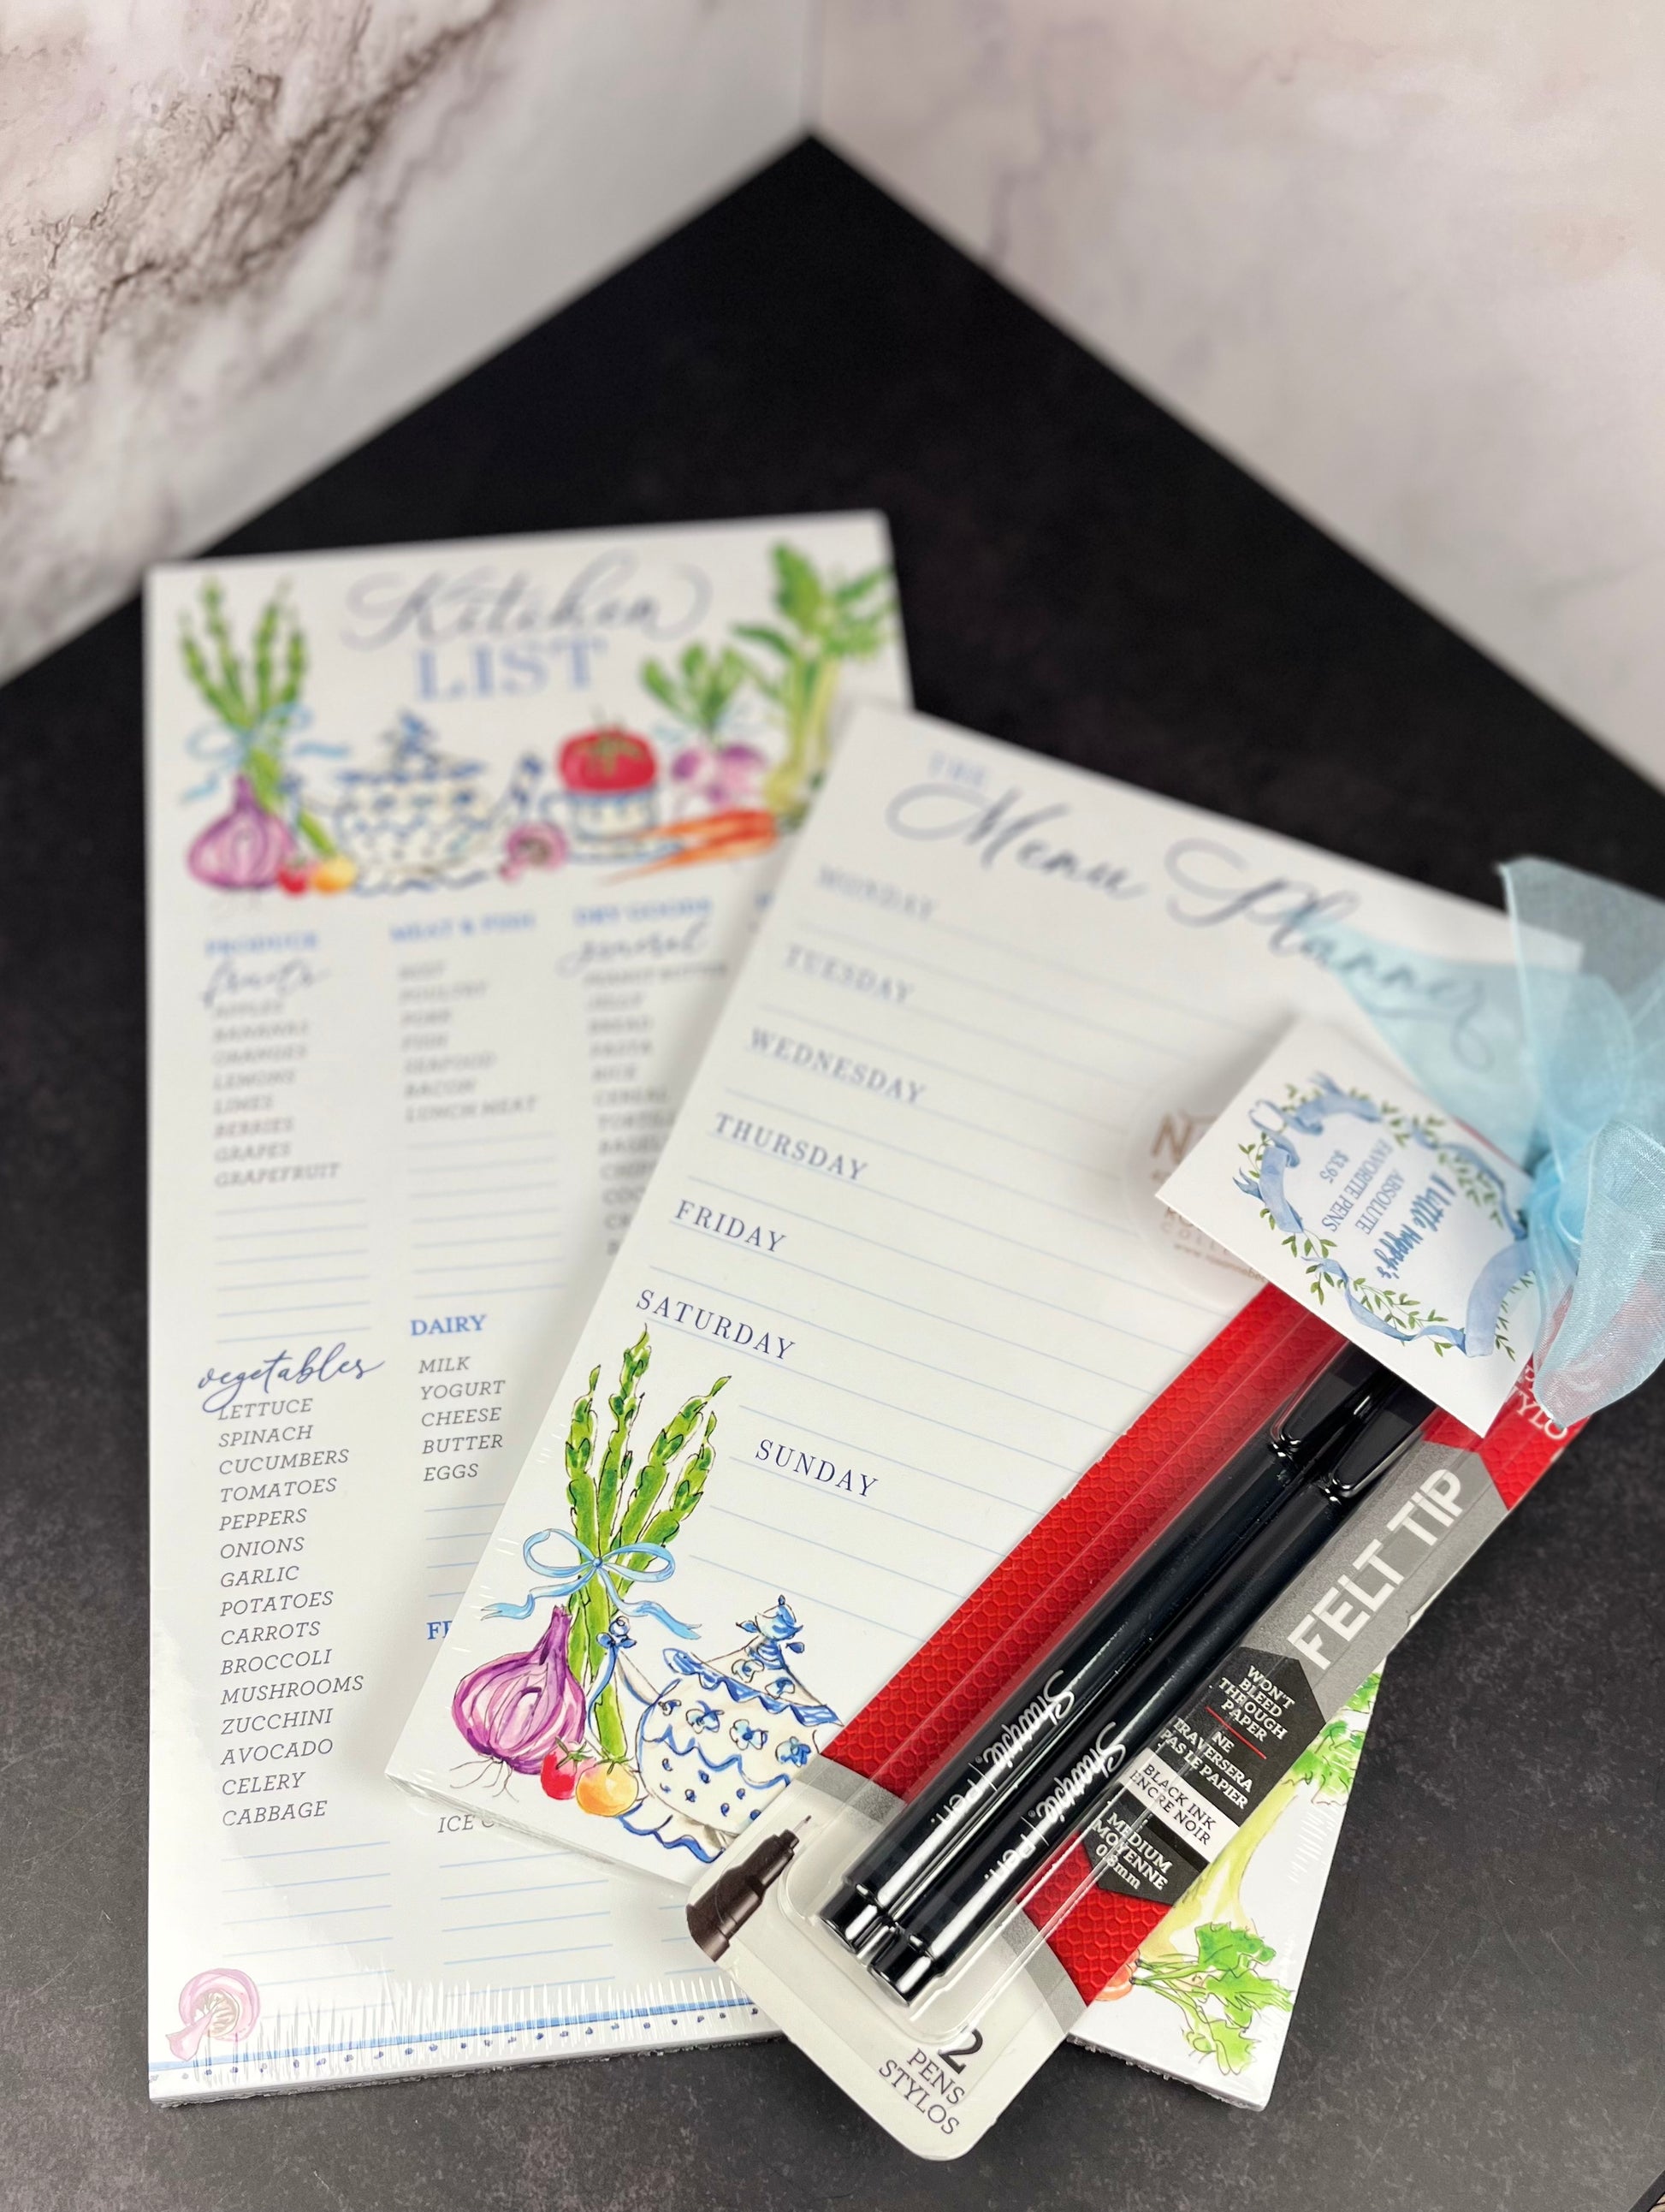 Kitchen
LIST
PRODUCE
fruits
APPLES
BANANAS
ORANGES
LEMONS
LIMES
BERRIES
GRAPES
GRAPEFRUIT
vegetables
LETTUCE
SPINACH
CUCUMBERS
TOMATOES
PEPPERS
ONIONS
GARLIC
POTATOES
CARROTS
BROCCOLI
MUSHROOMS
ZUCCHINI
AVOCADO
CELERY
CABBAGE
MEAT & FISH
BEEF
POULTRY
PORK
FISH
SEAFOOD
BACON
LUNCH MEAT
DAIRY
MILK
YOGURT
CHEESE
BUTTER
EGGS
ICE
DRY GOODS
general
PEANUT BUTTER
JELLY
BREAD
PASTA
RICE
CEREAL
THE
Menu Planner
MONDAY
TUESDAY
WEDNESDAY
THURSDAY
FRIDAY
SATURDAY
SUNDAY
A Little Happy's
ABSOLUTE
FAVORITE PENS
$3.95
FELT TIP
WON'T
BLEED
THROUGH
PAPER
NE
TRAVERSERA
PAS LE PAPIER
BLACK INK
ENCRE NOIR
MEDIUM
MOYENNE
0.8mm
Sharpie. | Pen.
Sharpie. | Pen.
2
PENS
STYLOS